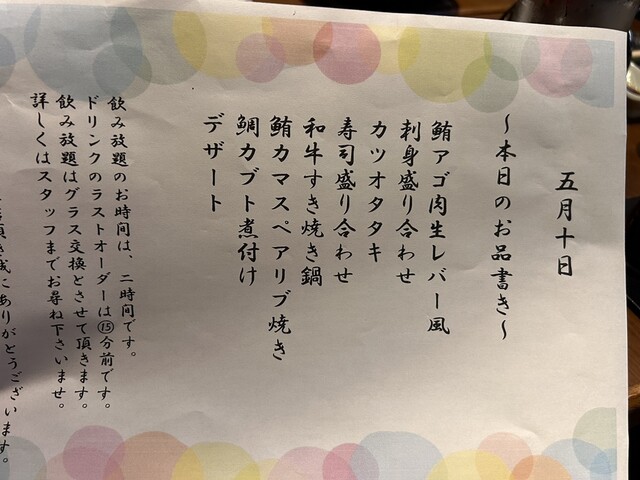 五月十日
～本日のお品書き～
鮪アゴ肉生レバー風
刺身盛り合わせ
カツオタタキ
寿司盛り合わせ
和牛すき焼き鍋
鮪カマスペアリブ焼き
鯛カブト煮付け
デザート
飲み放題のお時間は、二時間です。
ドリンクのラストオーダーは⑮分前です。
飲み放題はグラス交換とさせて頂きます。
詳しくはスタッフまでお尋ね下さいませ。
誠にありがとうございます。